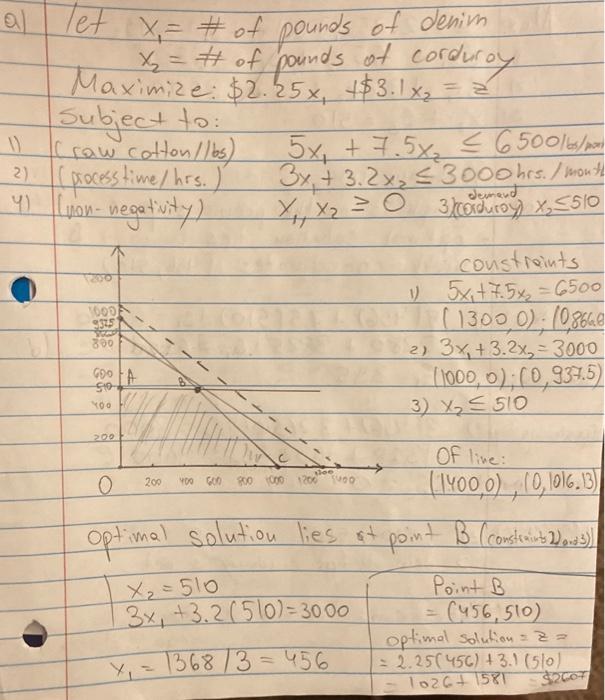 a) let x₁ = # of pounds of denim
x₂ = # of pounds of corduroy
Maximize: $2.25x₁ + $3.1x₂ = z
Subject to:
1) (raw cotton/lbs) 5x₁ + 7.5x₂ ≤ 6500 lbs/mon
2) (process time/hrs.) 3x₁ + 3.2x₂ ≤ 3000 hrs./month
4) (non-negativity) x₁, x₂ ≥ 0 3) demand (corduroy) x₂ ≤ 510
constraints
1) 5x₁ + 7.5x₂ = 6500
(1300, 0); (0, 866.6
2) 3x₁ + 3.2x₂ = 3000
(1000, 0); (0, 937.5)
3) x₂ ≤ 510
OF line:
(1400, 0), (0, 1016.13)
1200
1000
937.5
800
600
510
400
200
A
B
C
0 200 400 600 800 1000 1200 1300 1400
optimal solution lies at point B (constraints 2) and 3))
x₂ = 510
3x₁ + 3.2(510) = 3000
x₁ = 1368/3 = 456
Point B
= (456, 510)
optimal solution = z =
= 2.25(456) + 3.1(510)
= 1026 + 1581 = $2607